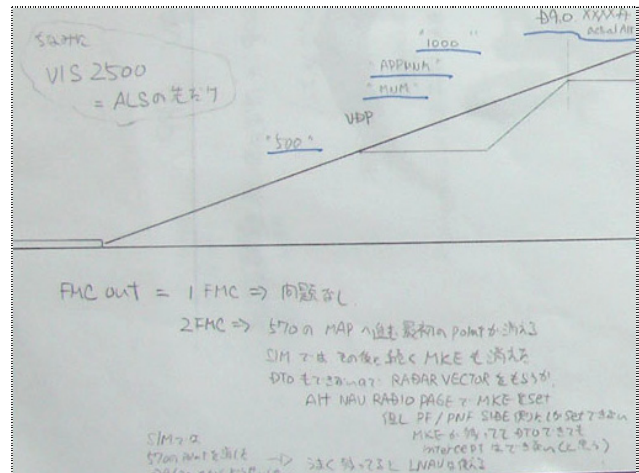 ちなみに
VIS 2500
= ALSの先だけ
D9.0 XXXX ft
Actual Alt
"1000"
"APPMUM"
"MUM"
VDP
"500"
FMC out = 1 FMC ⇒ 問題なし
2 FMC ⇒ 570の MAP へ進む最初の Point が消える
SIM では その後に続く MKE も消えた
DTO もできないので RADAR VECTOR をもらうか
Alt NAV RADIO PAGE で MKE をset
但し PF/PNF SIDE set できない
MKE が残ってて DTO できても
intercept はできない(と思う)
SIMでは
570の Point を消しても
うまく残ってると LNAVは使える